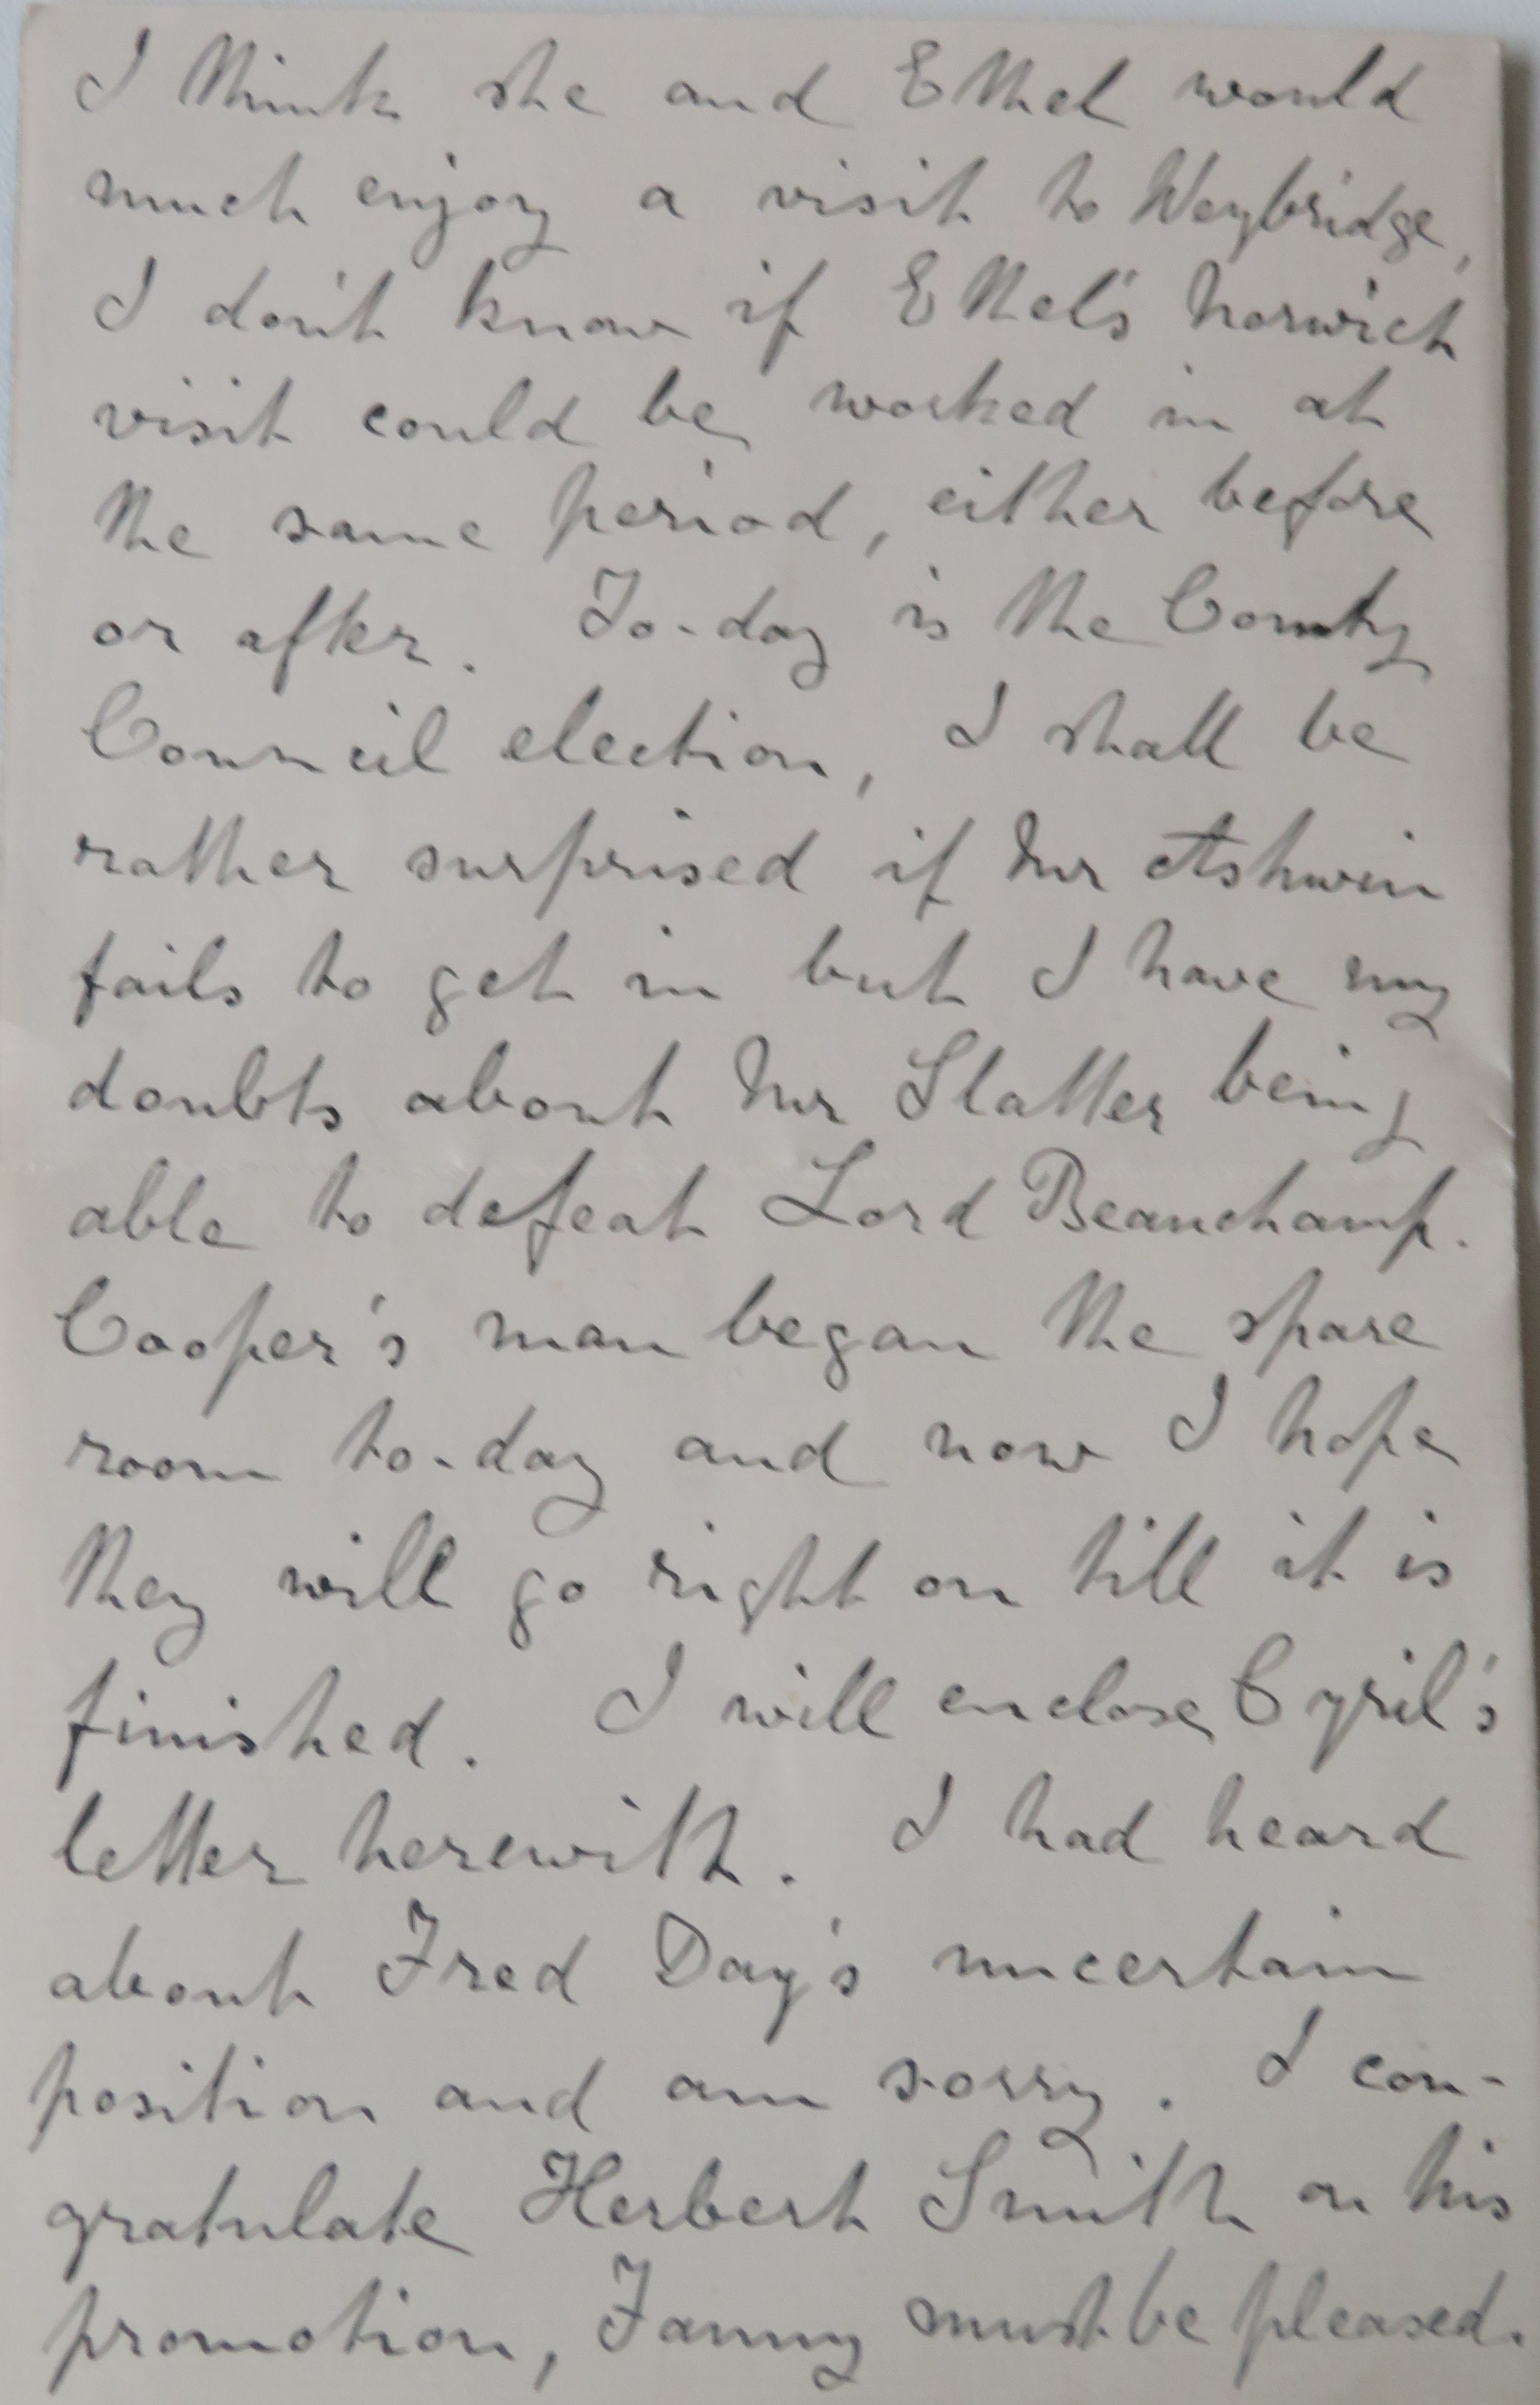 I think she and Ethel would
much enjoy a visit to Weybridge,
I don't know if Ethel's Norwich
visit could be worked in at
the same period, either before
or after. To-day is the County
Council election, I shall be
rather surprised if Mr Ashwin
fails to get in but I have my
doubts about Mr Slatter being
able to defeat Lord Beauchamp.
Cooper's man began the spare
room to-day and now I hope
they will go right on till it is
finished. I will enclose Cyril's
letter herewith. I had heard
about Fred Day's uncertain
position and am sorry. I con-
gratulate Herbert Smith on his
promotion, Fanny must be pleased.